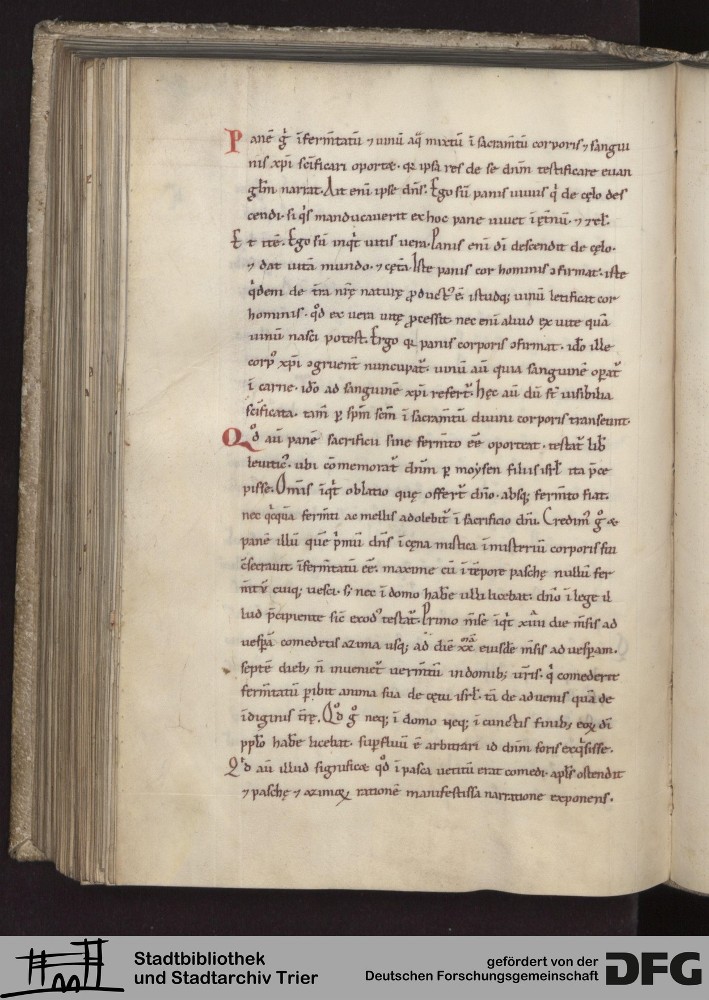 Panē g̃ īferm̄tatū ⁊ uinū aq̄ mixtū ī sacram̄tū corporis ⁊ sangui
nis xp̄i sc̄ificari oportæ. q̄ ipsa res de se dn̄m testificare euan
gl̄m narrat. Ait eni ipse dn̄s. Ego sū panis uiuus q̇ de cęlo des
cendi. si q̇s manducauerit ex hoc pane uiuet ī ęt̄nū. ⁊ rel̄.
Et itē. Ego sū inq̇t uitis uera. Panis eni dī descendit de cęlo.
⁊ dat uitā mundo. ⁊ cęt̄a. Iste panis cor hominis ɔfirmat. iste
q̇dem de t̄ra nr̄ę naturę ꝓductꝰ ē. istudq; uinū letificat cor
hominis. qd̊ ex uera uitę ꝓcessit. nec eni aliud ex uite quā
uinū nasci potest. Ergo q̄ panis corporis ɔfirmat. idō ille
corpꝰ xp̄i ɔgruent̄ nuncupat᷑. uinū aū quia sanguinē opat᷑
ī carne. idō ad sanguinē xp̄i refert᷑. hęc aū dū st̄ uisibilia
sc̄ificata. tam̄ ꝑ sp̄m sc̄m ī sacram̄tū diuini corporis transeunt.
Qd̊ aū panē sacrificii sine ferm̄to eē̄ oporteat. testat᷑ lib̄
leuiticꝰ. ubi cōmemorat᷑ dn̄m ꝑ moysen filiis isrl̄ ita p̄ce
pisse. Om̄is iq̇t oblatio quę offert᷑ dn̄o. absq; ferm̄to fiat.
nec q̇cquā ferm̄ti ac mellis adolebit᷑ ī sacrificio dn̄i. Credimꝰ g̊ ⁊
panē illū quē ṗmū dn̄s ī cęna mistica ī misteriū corporis sui
c̄secrauit. īferm̄tatū eē̄. maxime cū ī tēpore paschę nullū fer
m̄tū cuiq; uesci. s; nec ī domo habē ulli licebat. dn̄o ī lege il
lud p̄cipiente sic̄ exodꝰ testat᷑. Primo m̄se iq̇t xiiii die m̄sis ad
uesꝑā comedetis azima usq; ad diē xx ͥ ͫ ͣ eiusdē m̄sis ad uesꝑam.
septē dieb; n̄ inueniet᷑ uerm̄tū in domib; ur̄is. q̇ comederit
ferm̄tatū ꝑibit anima sua de cętu isrl̄. tā de aduenis quā de
īdiginis t̄rę. Qd̊ g̊ neq; ī domo neq; ī cunctis finib; eoꝝ dī
pplo habē licebat. suꝑfluū ē arbitrari id dn̄m foris exq̇sisse.
Qd̊ aū illud significæ qd̊ ī pasca uetitū erat comedi. apl̄s ostendit
⁊ paschę ⁊ azimoꝝ rationē manifestissa narratione exponens.
Stadtbibliothek
und Stadtarchiv Trier
gefördert von der
Deutschen Forschungsgemeinschaft
DFG